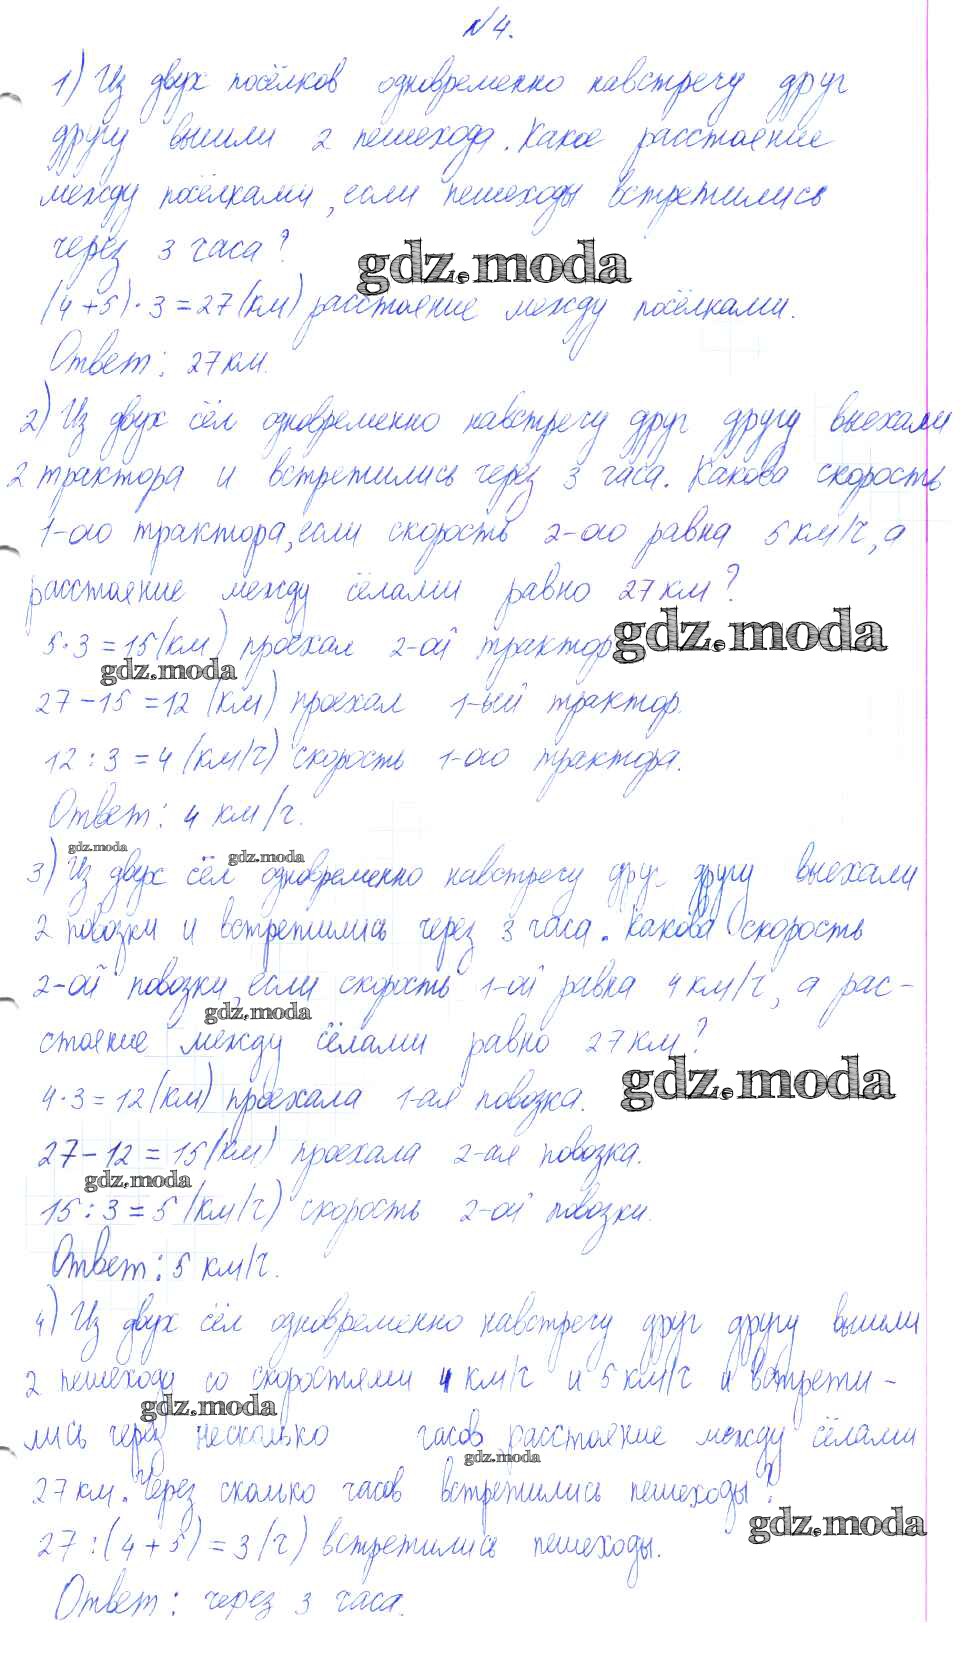 №4.
1) Из двух посёлков одновременно навстречу друг
другу вышли 2 пешехода. Какое расстояние
между посёлками, если пешеходы встретились
через 3 часа?
gdz.moda
(4+5)·3=27(км) расстояние между посёлками.
Ответ: 27км.
2) Из двух сёл одновременно навстречу друг другу выехали
2 трактора и встретились через 3 часа. Какова скорость
1-ого трактора, если скорость 2-ого равна 5 км/ч, а
расстояние между сёлами равно 27 км?
5·3=15(км) проехал 2-ой трактор
gdz.moda
gdz.moda
27-15=12 (км) проехал 1-ый трактор.
12:3=4 (км/ч) скорость 1-ого трактора.
Ответ: 4 км/ч.
gdz.moda
gdz.moda
3) Из двух сёл одновременно навстречу друг другу выехали
2 повозки и встретились через 3 часа. Какова скорость
2-ой повозки, если скорость 1-ой равна 4 км/ч, а рас-
gdz.moda
стояние между сёлами равно 27 км?
gdz.moda
4·3=12(км) проехала 1-ая повозка.
27-12=15(км) проехала 2-ая повозка.
gdz.moda
15:3=5(км/ч) скорость 2-ой повозки.
Ответ: 5 км/ч.
4) Из двух сёл одновременно навстречу друг другу вышли
2 пешехода со скоростями 4 км/ч и 5 км/ч и встрети-
gdz.moda
лись через несколько часов расстояние между сёлами
gdz.moda
27 км. Через сколько часов встретились пешеходы?
gdz.moda
27:(4+5)=3(ч) встретились пешеходы.
Ответ: через 3 часа.